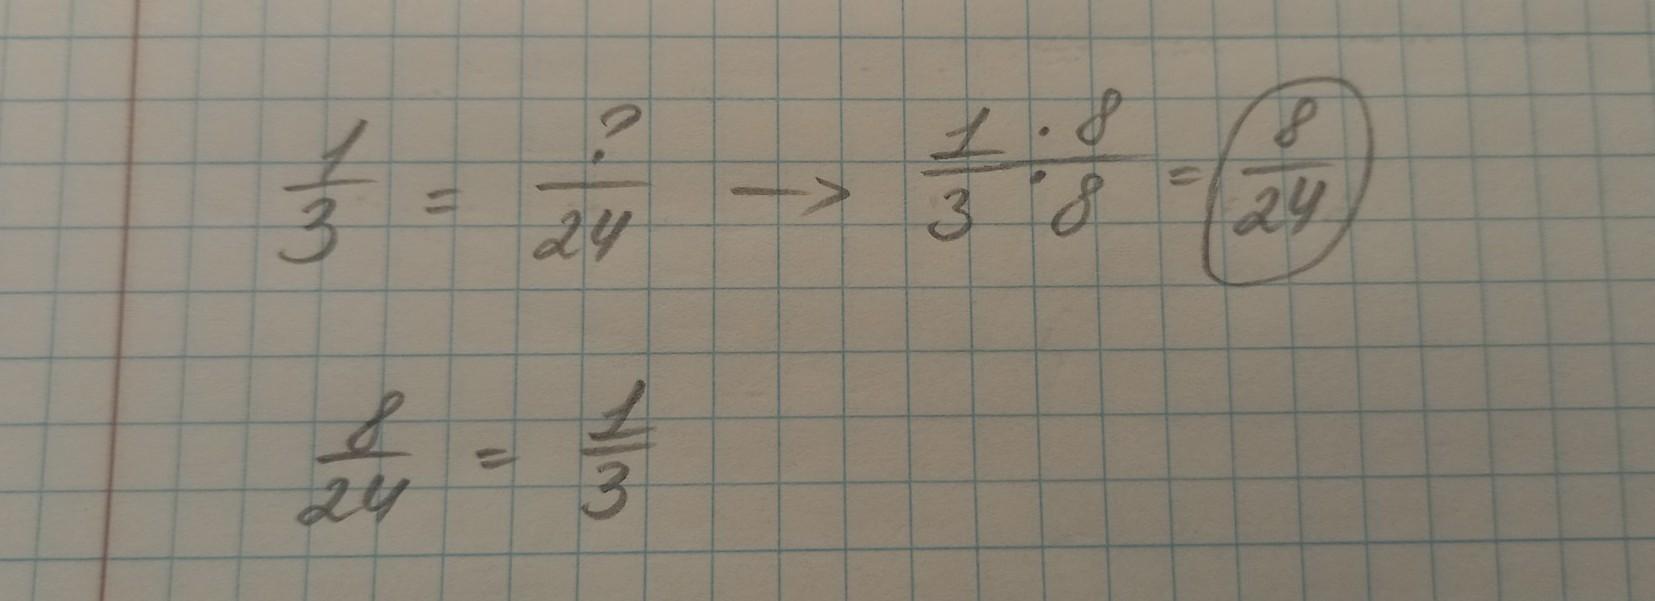 1/3 = ?/24 → 1 · 8/3 · 8 = 8/24
8/24 = 1/3